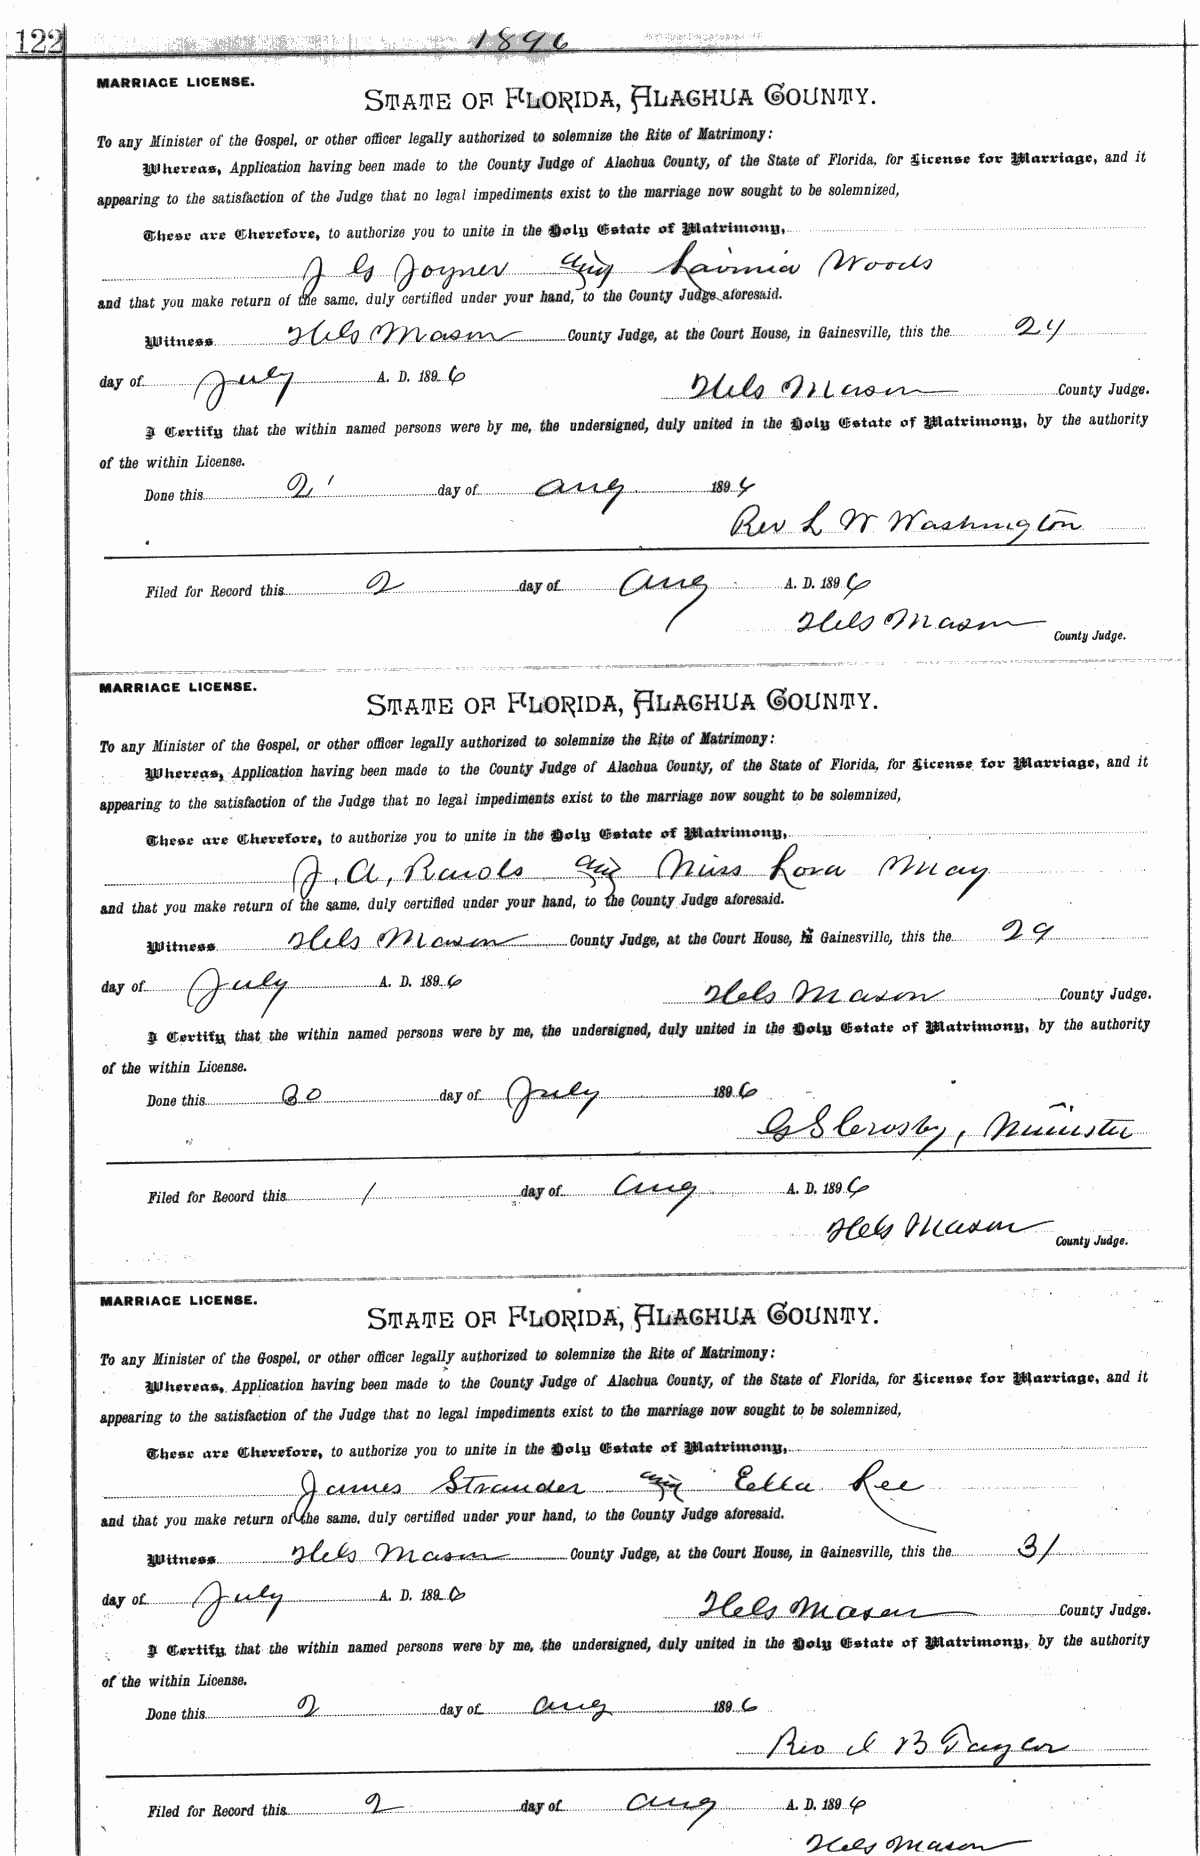 122
1896
MARRIAGE LICENSE.
STATE OF FLORIDA, ALACHUA COUNTY.
To any Minister of the Gospel, or other officer legally authorized to solemnize the Rite of Matrimony:
Whereas, Application having been made to the County Judge of Alachua County, of the State of Florida, for License for Marriage, and it
appearing to the satisfaction of the Judge that no legal impediments exist to the marriage now sought to be solemnized,
These are Therefore, to authorize you to unite in the Holy Estate of Matrimony,
J G Joyner and Lavinia Woods
and that you make return of the same, duly certified under your hand, to the County Judge aforesaid.
Witness Hels Mason County Judge, at the Court House, in Gainesville, this the 24
day of July A. D. 1896 Hels Mason County Judge.
I Certify that the within named persons were by me, the undersigned, duly united in the Holy Estate of Matrimony, by the authority
of the within License.
Done this 2 day of Aug 1896
Rev L W Washington
Filed for Record this 2 day of Aug A. D. 1896
Hels Mason
County Judge.
MARRIAGE LICENSE.
STATE OF FLORIDA, ALACHUA COUNTY.
To any Minister of the Gospel, or other officer legally authorized to solemnize the Rite of Matrimony:
Whereas, Application having been made to the County Judge of Alachua County, of the State of Florida, for License for Marriage, and it
appearing to the satisfaction of the Judge that no legal impediments exist to the marriage now sought to be solemnized,
These are Therefore, to authorize you to unite in the Holy Estate of Matrimony,
J. A, Rawls and Miss Lova May
and that you make return of the same, duly certified under your hand, to the County Judge aforesaid.
Witness Hels Mason County Judge, at the Court House, in Gainesville, this the 29
day of July A. D. 1896 Hels Mason County Judge.
I Certify that the within named persons were by me, the undersigned, duly united in the Holy Estate of Matrimony, by the authority
of the within License.
Done this 30 day of July 1896
G S Crosby, Minister
Filed for Record this 1 day of Aug A. D. 1896
Hels Mason
County Judge.
MARRIAGE LICENSE.
STATE OF FLORIDA, ALACHUA COUNTY.
To any Minister of the Gospel, or other officer legally authorized to solemnize the Rite of Matrimony:
Whereas, Application having been made to the County Judge of Alachua County, of the State of Florida, for License for Marriage, and it
appearing to the satisfaction of the Judge that no legal impediments exist to the marriage now sought to be solemnized,
These are Therefore, to authorize you to unite in the Holy Estate of Matrimony,
James Strauder and Ella Lee
and that you make return of the same, duly certified under your hand, to the County Judge aforesaid.
Witness Hels Mason County Judge, at the Court House, in Gainesville, this the 31
day of July A. D. 1896 Hels Mason County Judge.
I Certify that the within named persons were by me, the undersigned, duly united in the Holy Estate of Matrimony, by the authority
of the within License.
Done this 2 day of Aug 1896
Rev I B Taylor
Filed for Record this 2 day of Aug A. D. 1896
Hels Mason